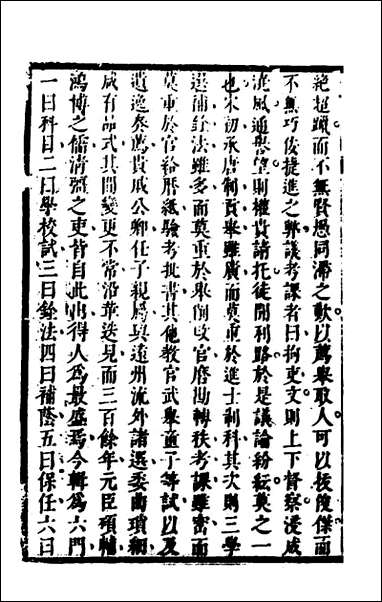 絶超躐而不無賢愚同滯之歎以薦舉取人可以拔俊傑而
不無巧佞捷進之弊議考課者曰拘吏文則上下督察浸成
澆風通譽望則權貴請托徒開利路於是議論紛紜莫之一
也宋初承唐制貢舉雖廣而莫重於進士制科其次則三學
選補銓法雖多而莫重於舉削改官磨勘轉秩考課雖密而
莫重於官給曆紙驗考批書其他教官武舉童子等試以及
遺逸奏薦貴戚公卿任子親屬與遠州流外諸選委曲瑣細
咸有品式其間變更不常沿革迭見而三百餘年元臣碩輔
鴻博之儒清彊之吏皆自此出得人爲最盛焉今輯爲六門
一曰科目二曰學校試三曰銓法四曰補蔭五曰保任六曰